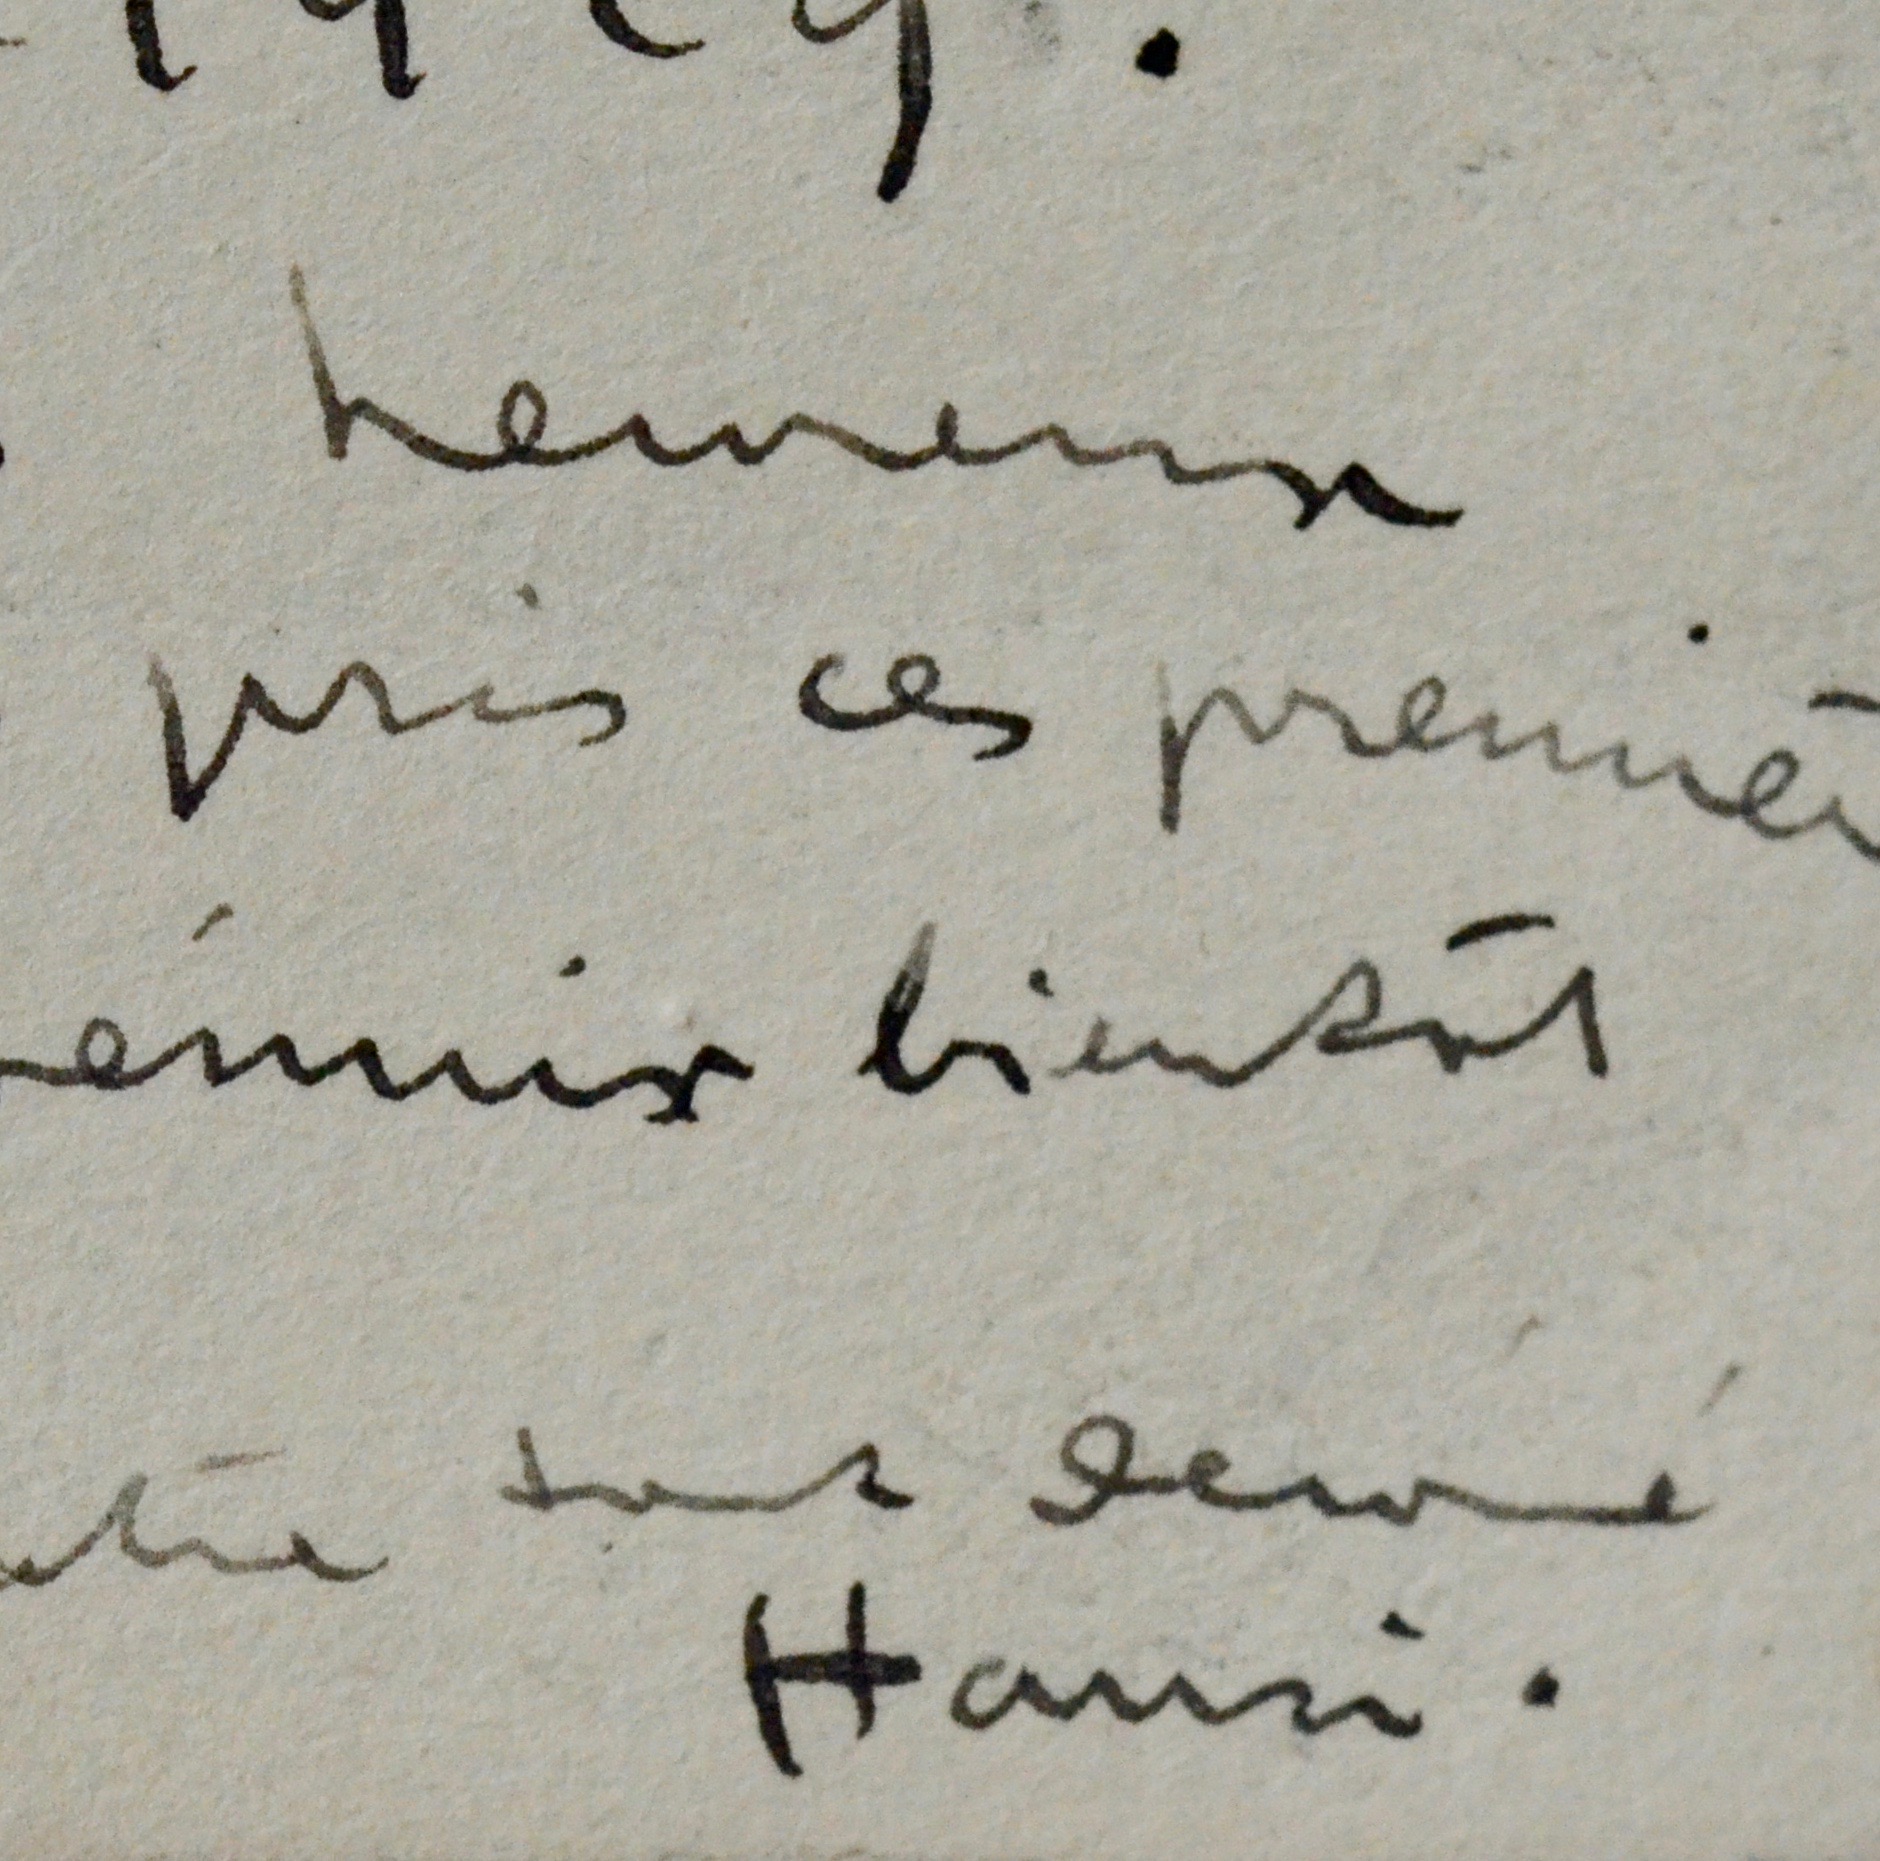 heureux
pris ces premièr
rémir bientôt
tout dévoué
Hansi.